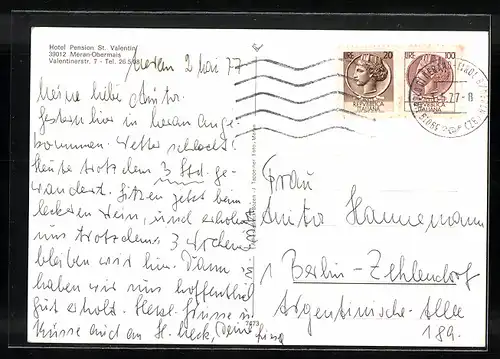 Hotel Pension St. Valentin
39012 Meran-Obermais
Valentinerstr. 7 - Tel. 26 5
Meran 2 Mai 77
Meine liebe Anita.
Gestern hier in Meran ange-
kommen. Wetter schlecht!
Heute trotzdem 3 Std. ge-
wandert. Sitzen jetzt beim
leckeren Wein, und erholen
uns trotzdem. 3 Wochen
bleiben wir hier. Dann
haben wir uns hoffentlich
gut erholt. Herzl. Grüsse u.
Küsse auch an H.
LIRE 20
LIRE 100
Frau
Anita Hannemann
1 Berlin-Zehlendorf
Argentinische-Allee
189.
7473